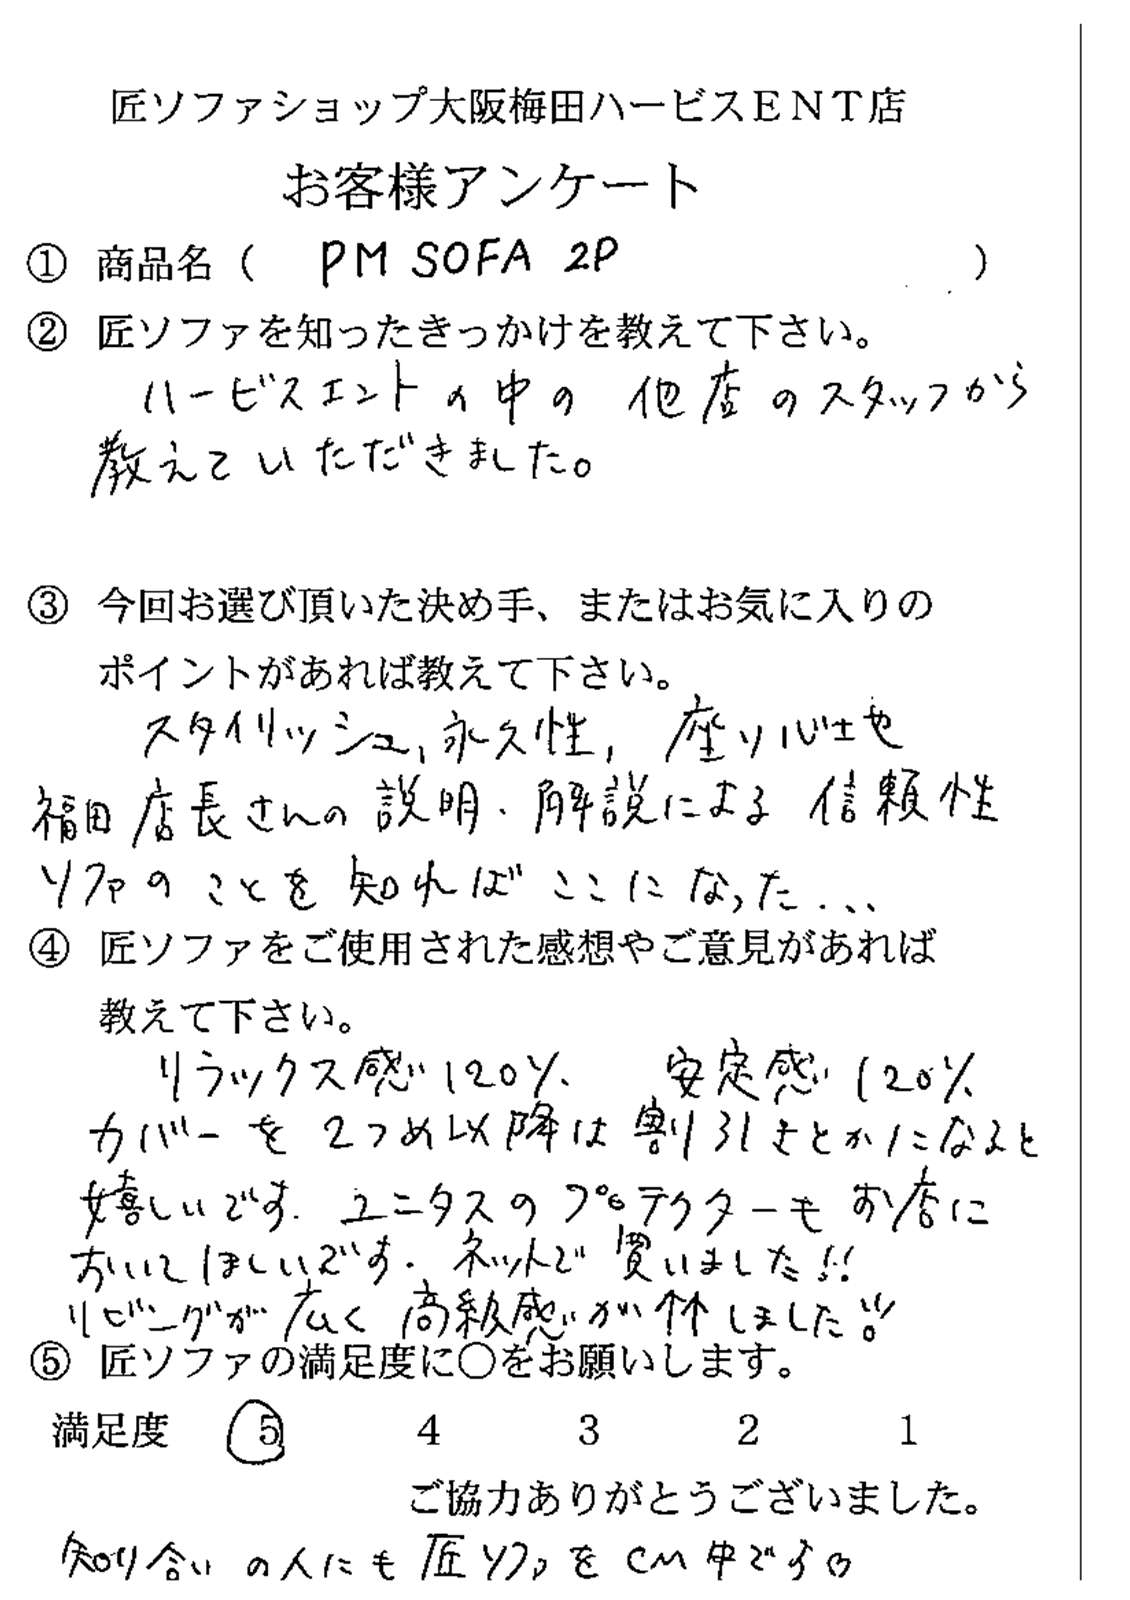 匠ソファショップ大阪梅田ハービスＥＮＴ店
お客様アンケート
① 商品名（ PM SOFA 2P ）
② 匠ソファを知ったきっかけを教えて下さい。
ハービスエントの中の 他店のスタッフから
教えていただきました。
③ 今回お選び頂いた決め手、またはお気に入りの
ポイントがあれば教えて下さい。
スタイリッシュ, 永久性, 座り心地
福田店長さんの説明・解説による信頼性
ソファのことを知ればここになった...
④ 匠ソファをご使用された感想やご意見があれば
教えて下さい。
リラックス感 120%、 安定感 120%
カバーを2つめ以降は割引きとかになると
嬉しいです. ユニタスのプロテクターもお店に
おいてほしいです. ネットで買いました!!
リビングが広く高級感が↑↑しました!!
⑤ 匠ソファの満足度に〇をお願いします。
満足度 5 4 3 2 1
ご協力ありがとうございました。
知り合いの人にも匠ソファをCM中です♡